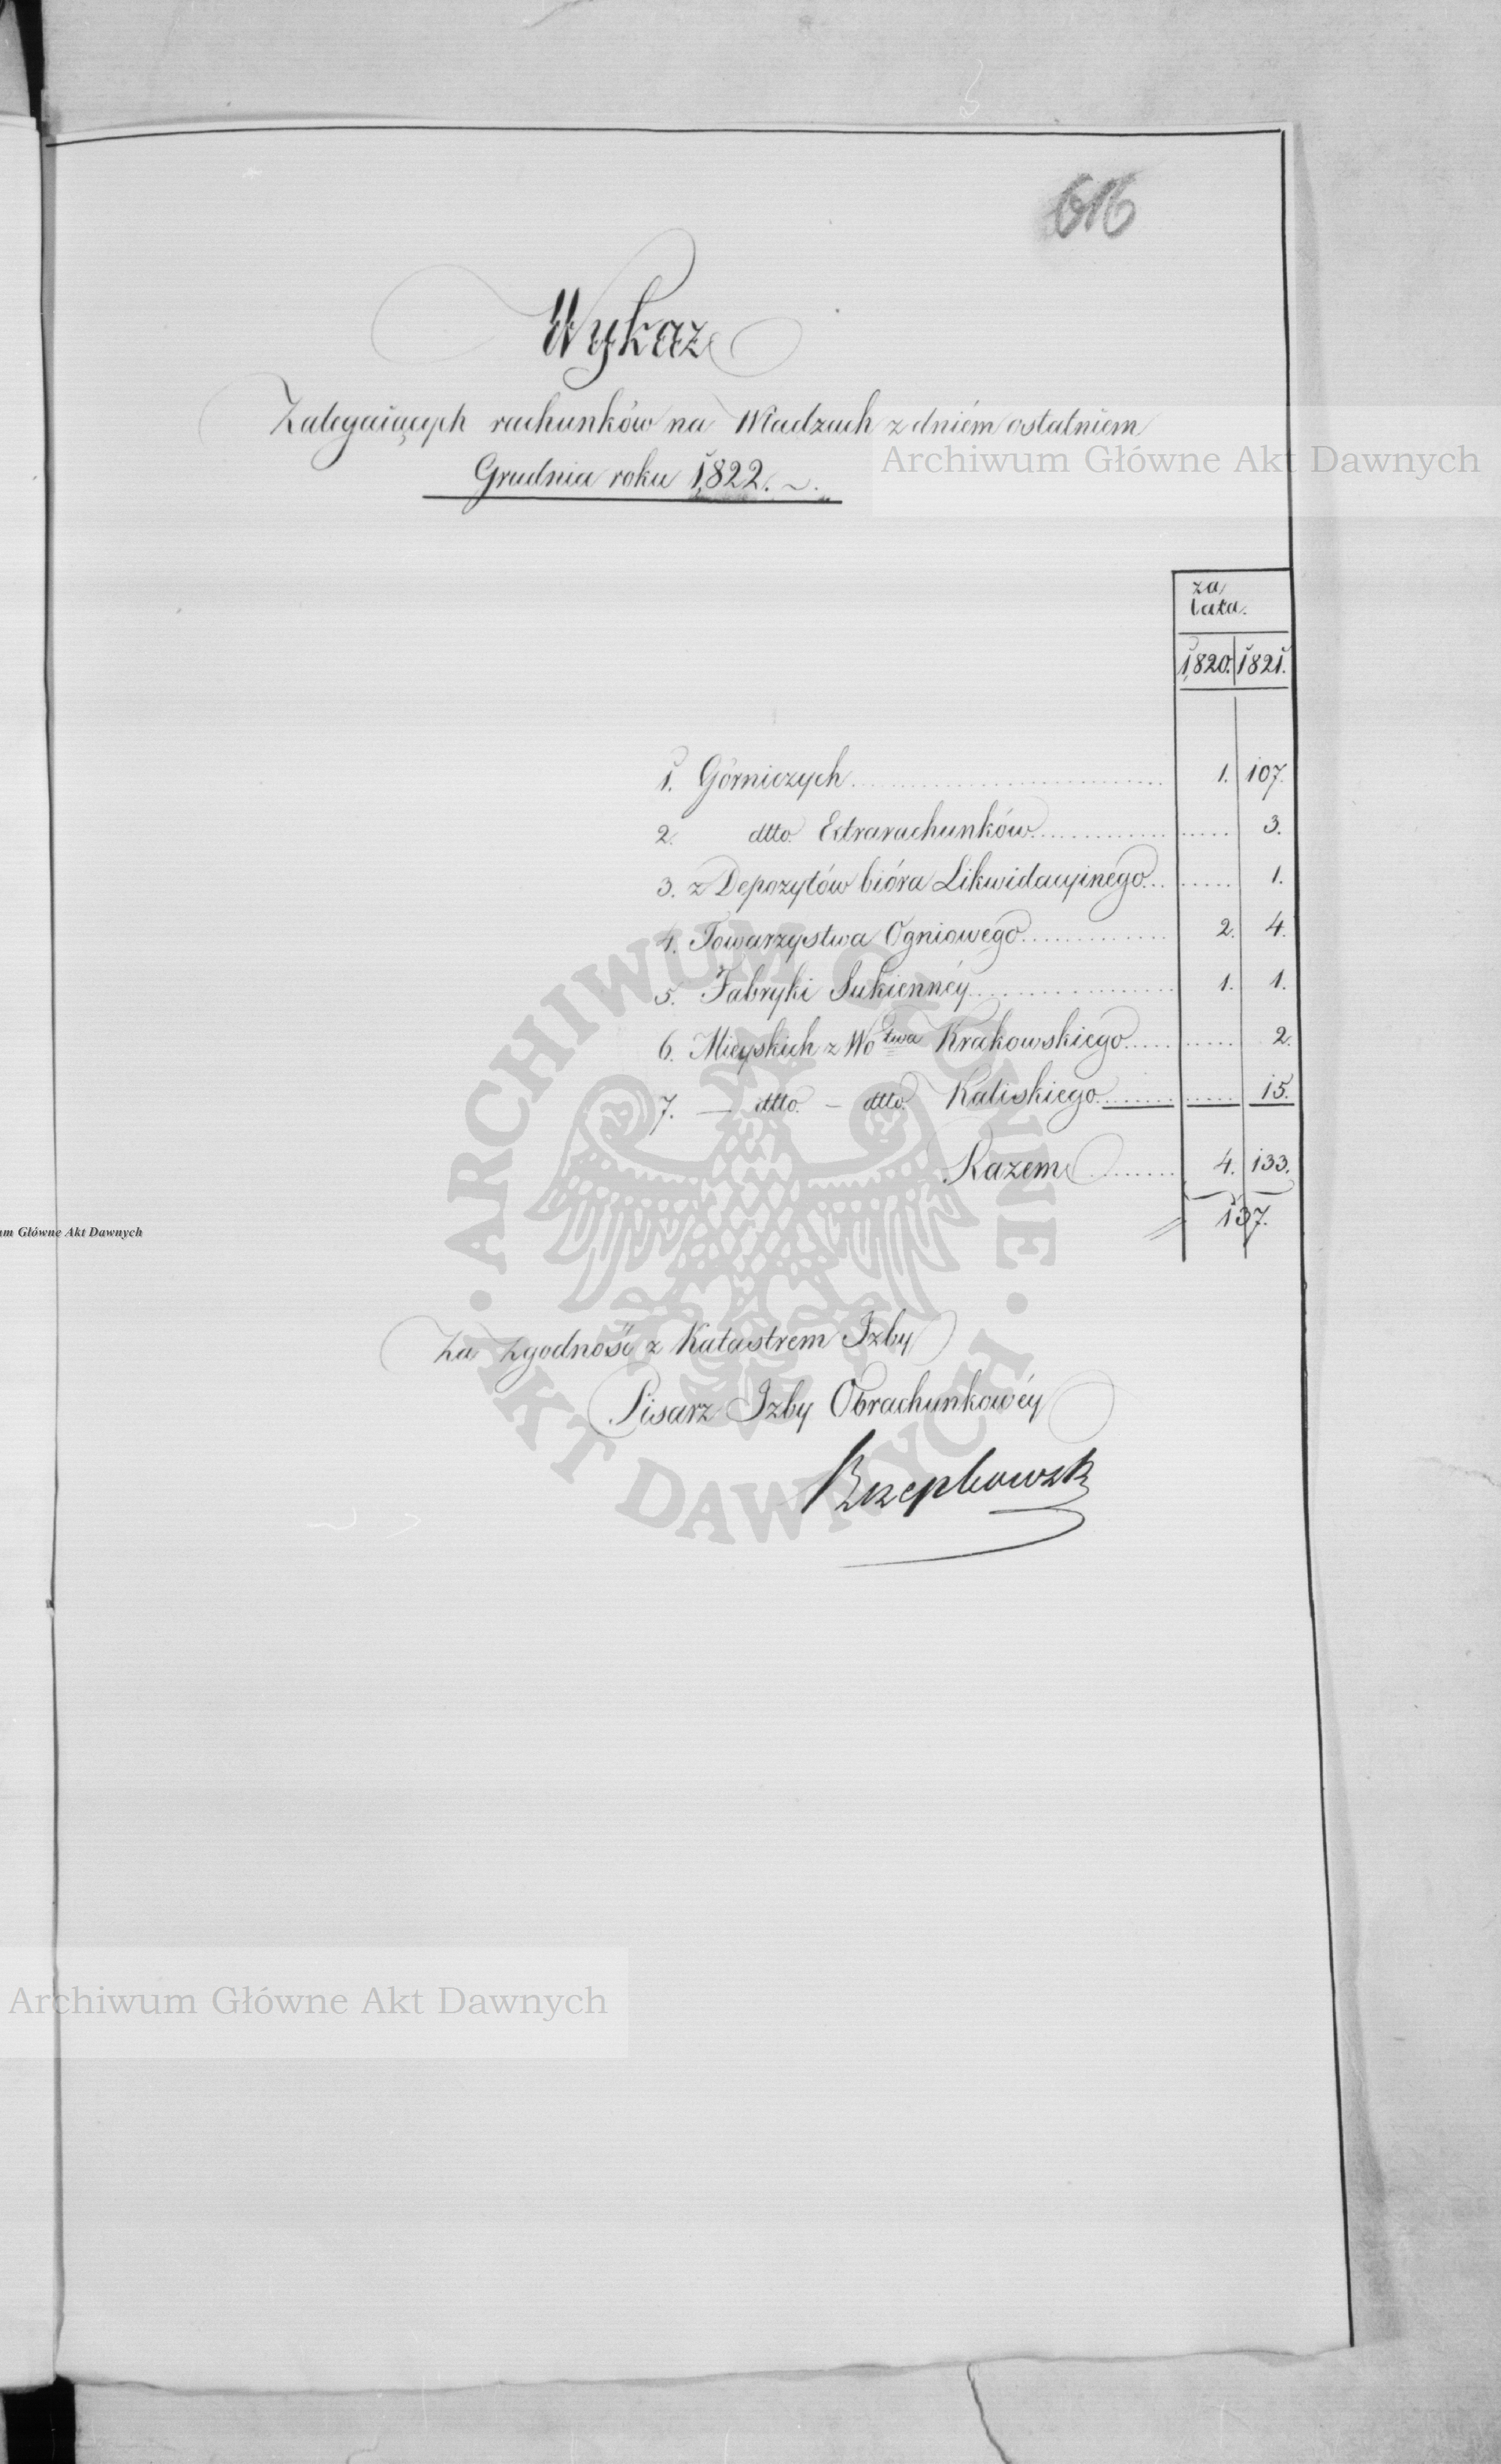 616
Wykaz
Zalegaiących rachunków na Władzach z dniém ostatniem
Grudnia roku 1,822.
Archiwum Główne Akt Dawnych
za
lata.
1,820. 1821.
1. Górniczych 1. 107.
2. dtto Extrarachunków 3.
3. z Depozytów bióra Likwidacyinégo 1.
4. Towarzystwa Ogniowego 2. 4.
5. Fabryki Sukiennéy 1. 1.
6. Mieyskich z Wo͏twa Krakowskiego 2.
7. — dtto. — dtto. Kaliskiego 15.
Razem 4. 133.
137.
um Główne Akt Dawnych
Za zgodność z Katastrem Izby
Pisarz Izby Obrachunkowéy
ARCHIWUM GŁÓWNE · AKT DAWNYCH ·
Archiwum Główne Akt Dawnych